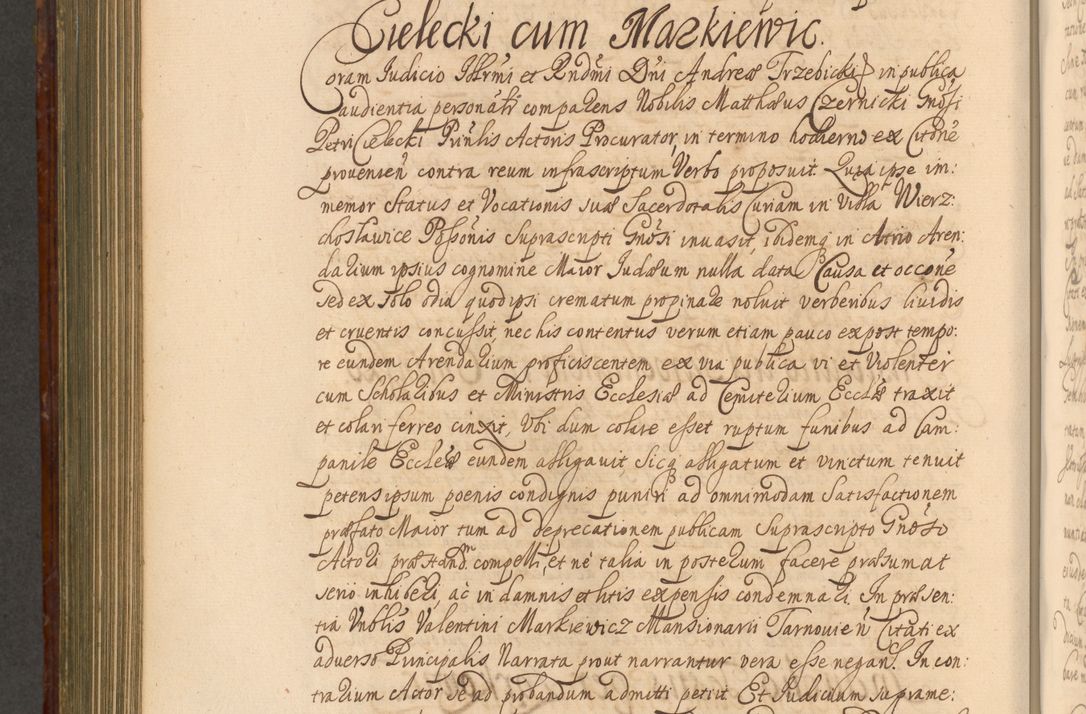 Cielecki cum Mazkiewic.
Coram Iudicio Illrmi et Rndmi Dni Andreæ Trzebicki in publica
audientia personałr compaꝛens Nobilis Matthæus Czernicki Gnosi
Petri Cielecki Prinlis Actoris Procurator, in termino hodierno ex Citone
provenien contra reum infrascriptum Verbo proposuit. Quia ipse im:
memor Status et Vocationis suæ Sacerdotalis Curiam in Villa Wierz:
chosławice Possonis Suprascripti Gnosi inuasit, ibidemq in Atrio Aren:
darium ipsius cognomine Maior Iudæum nulla data Causa et occone
sed ex solo odio quod ipsi crematum propinare noluit verberibus liuidis
et cruentis concussit, nec his contentus verum etiam pauco ex post tempo:
re eundem Arendarium proficiscentem ex via publica vi et Violenter
cum Scholaribus et Ministris Ecclesiæ ad Cemiterium Ecclæ traxit
et colari ferreo cinxit, Vbi dum colare esset ruptum funibus ad Cam:
panile Ecclæ eundem alligauit Sicq alligatum et vinctum tenuit
petens ipsum poenis condignis puniri ad omnimodam Satisfactionem
præfato Maior tum ad deprecationem publicam Suprascripto Gnoso
Actori præstand compelli, et ne talia in posterum facere præsumat
serio inhiberi, ac in damnis et litis expensis condemnari. In præsen:
tia Vnblis Valentini Markiewicz Mansionarii Tarnovien Citati ex
aduerso Principalis Narrata prout narrantur vera esse negan. In con:
trarium Actor se ad probandum admitti petiit Et Iudicium suprame: